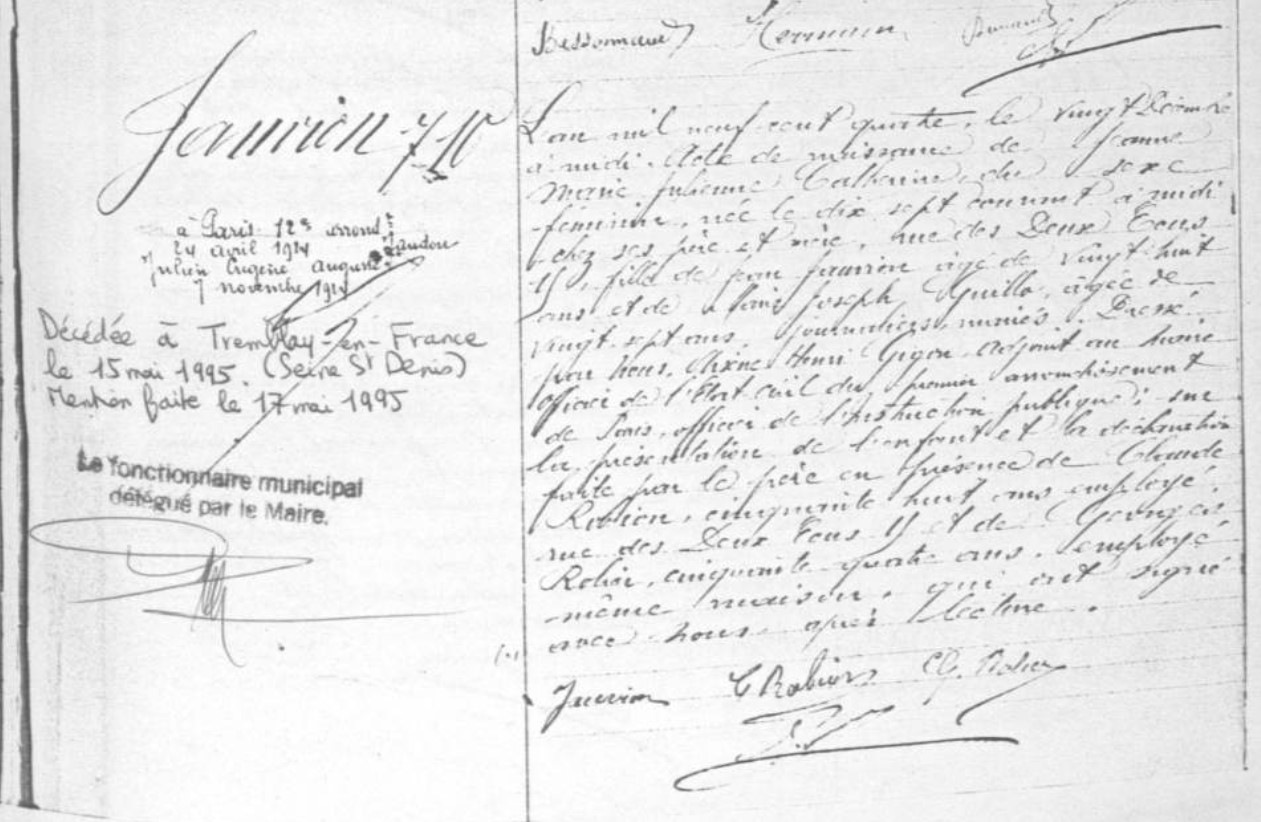 Bessonnaud Hermann
Jauvion 710
à Paris 12e arrondt
24 avril 1924
Julien Eugène Auguste Landou
7 novembre 1924
Décédée à Tremblay-en-France
le 15 mai 1995. (Seine St Denis)
Mention faite le 17 mai 1995
Le fonctionnaire municipal
délégué par le Maire.
L'an mil neuf cent quatre, le vingt Décembre
à midi. Acte de naissance de Jeanne
Marie Julienne Catherine, du sexe
féminin, née le dix sept courant à midi
chez ses père et mère, rue des Deux Ecus
, fille de Jean Jauvion âgé de vingt huit
ans et de Marie Joseph Guillo, âgée de
vingt sept ans, journaliers, mariés. Dressé
par Nous, Henri Gigon, adjoint au maire
officier de l'Etat civil du premier arrondissement
de Paris, officier de l'instruction publique; sur
la présentation de l'enfant et la déclaration
faite par le père en présence de Claude
Robion, cinquante huit ans employé,
rue des Deux Ecus et de Georges
Robin, cinquante quatre ans, employé
même maison, qui ont signé
avec nous après lecture.
Jauvion